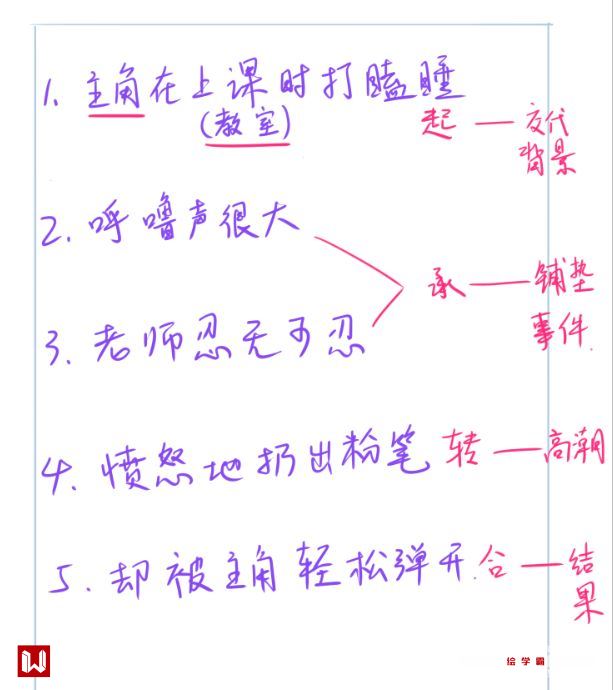 1. 主角在上课时打瞌睡
(教室)
起 — 交代
背景
2. 呼噜声很大
3. 老师忍无可忍
承 — 铺垫
事件
4. 愤怒地扔出粉笔 转 — 高潮
5. 却被主角轻松弹开 合 — 结
果
绘学霸